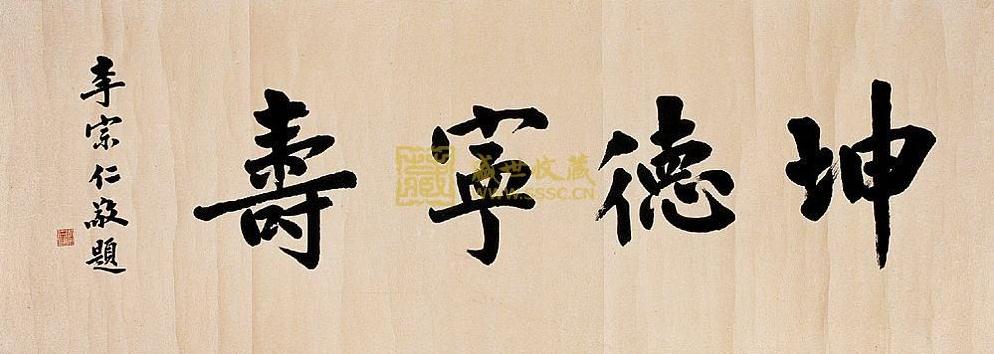 坤德寧壽
李宗仁敬題
盛世收藏
WWW.SSSC.CN